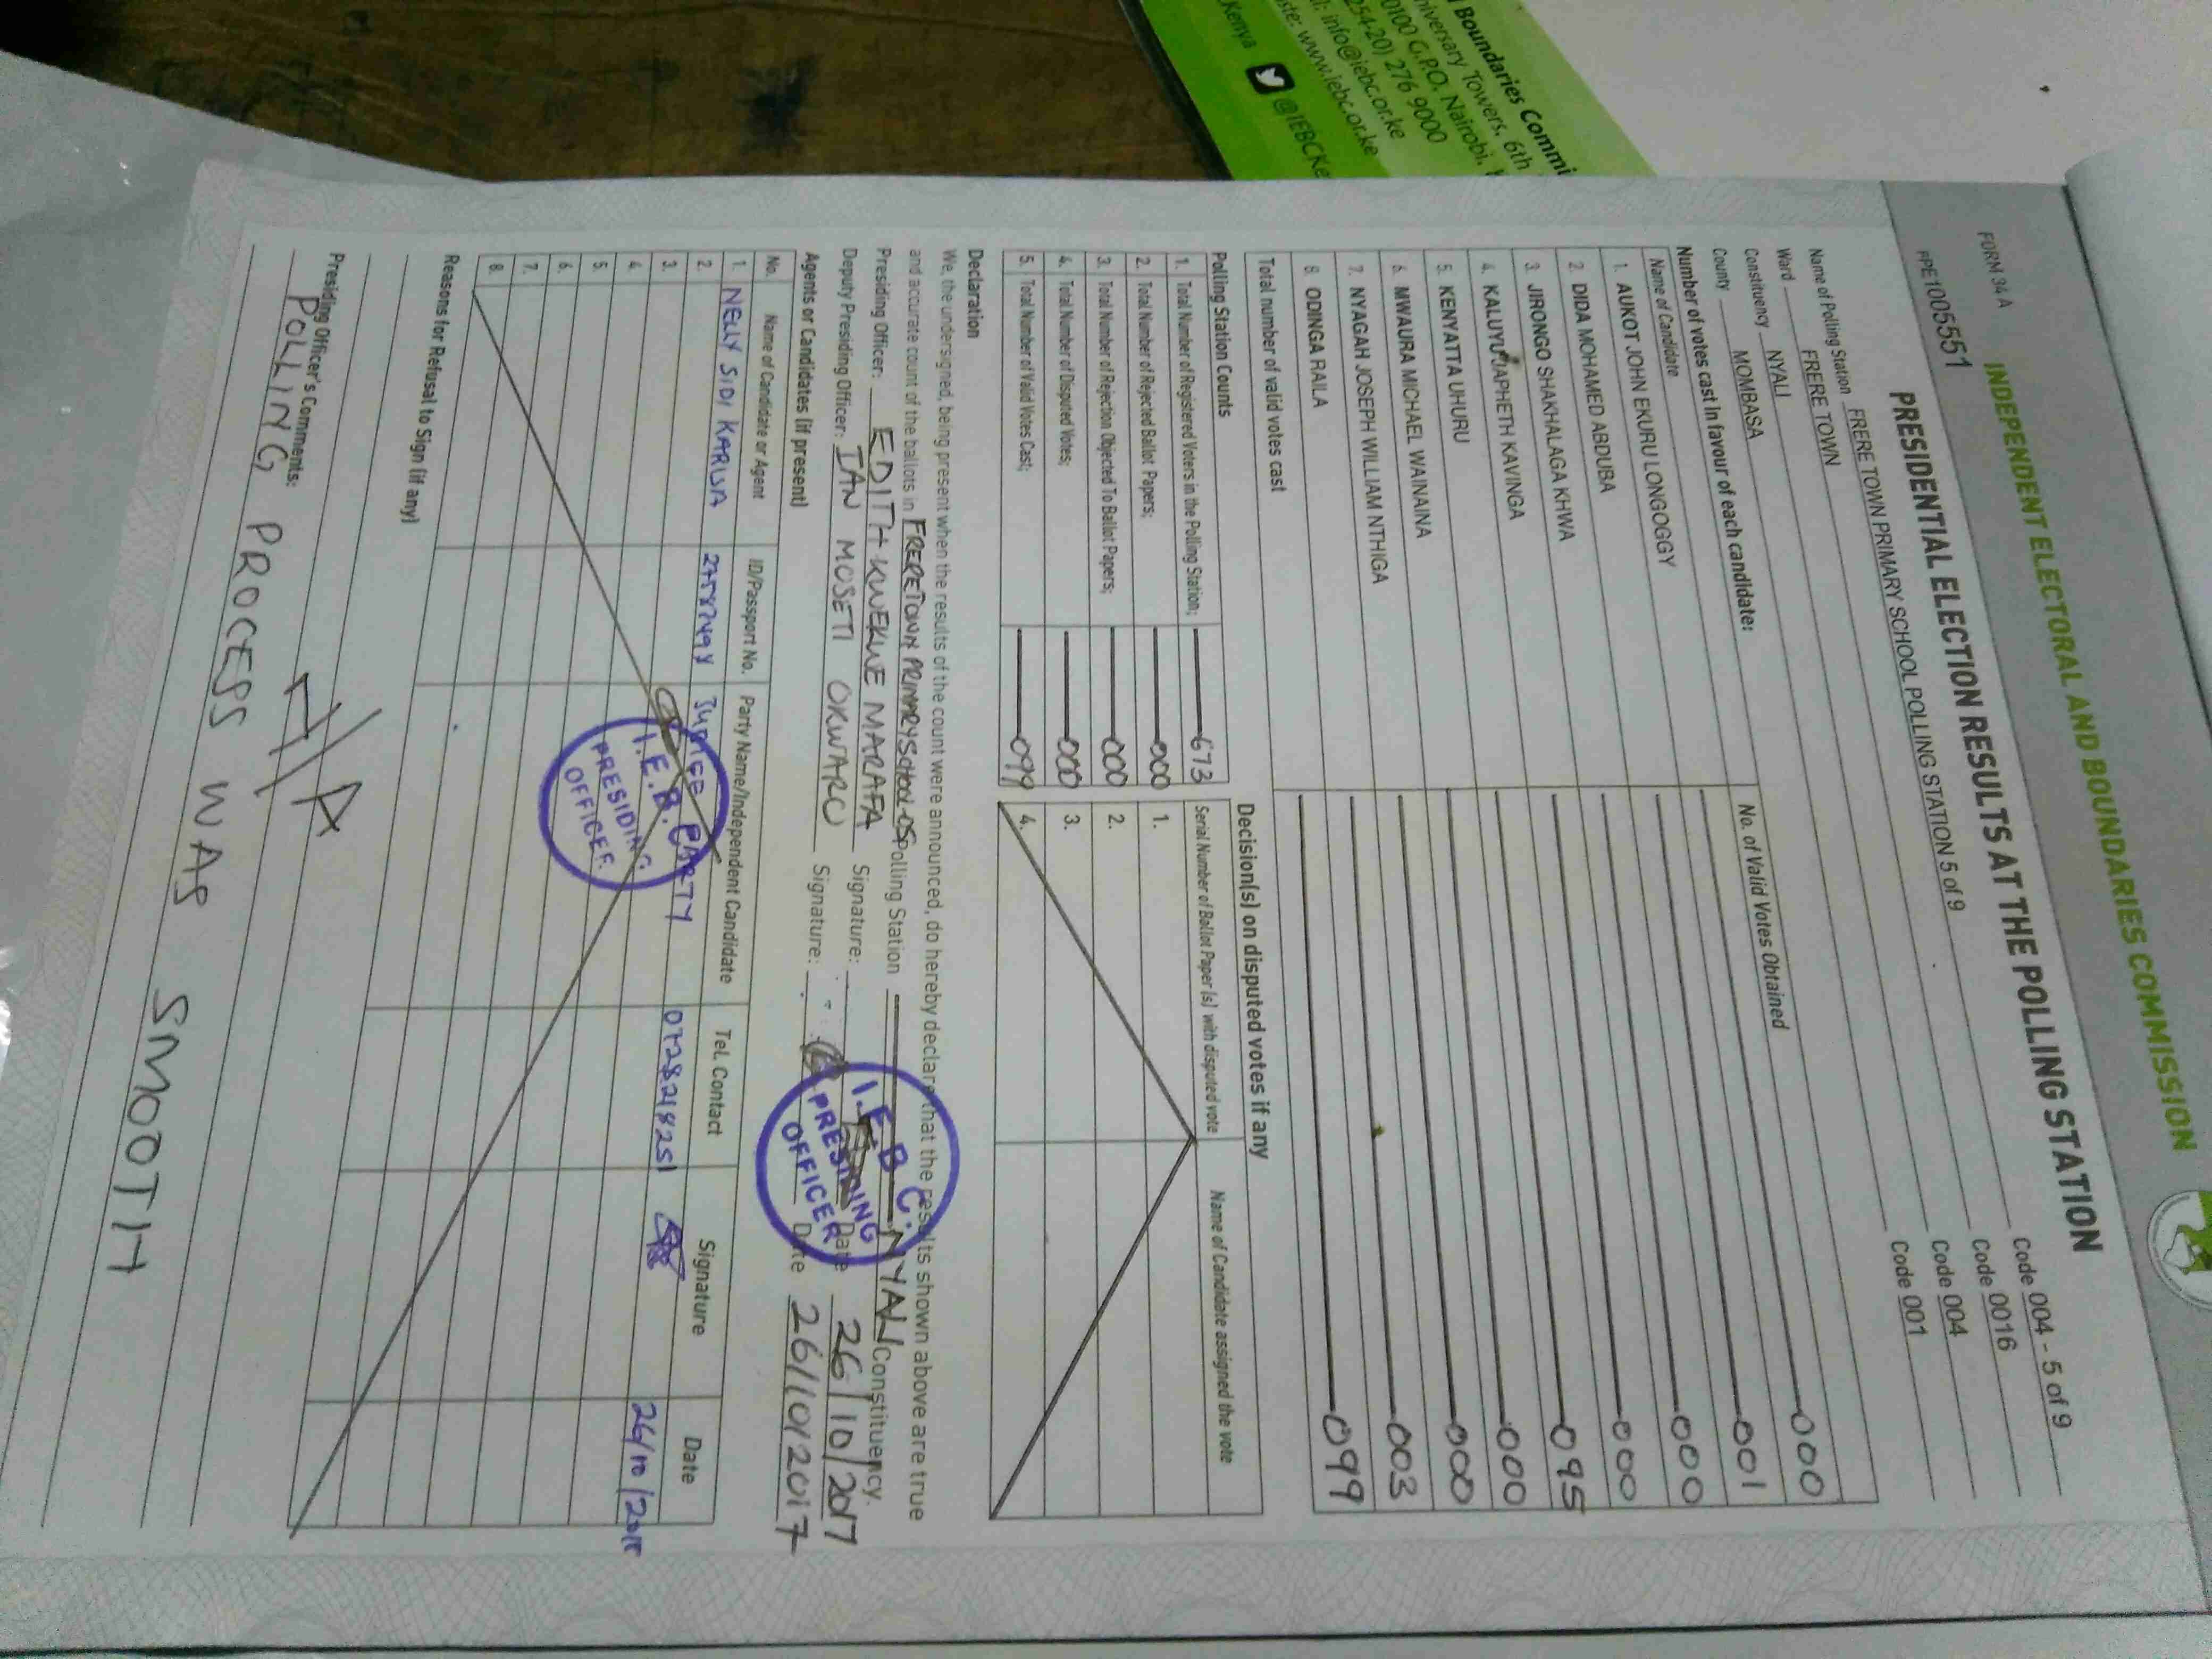 Boundaries Commi
niversary Towers, 6th
0100 G.P.O, Nairobi,
254-20) 276 9000
l: info@iebc.or.ke
ste: www.iebc.or.ke
Kenya @IEBCKe
FORM 34 A
INDEPENDENT ELECTORAL AND BOUNDARIES COMMISSION
PRE1005551
PRESIDENTIAL ELECTION RESULTS AT THE POLLING STATION
Name of Polling Station FRERE TOWN PRIMARY SCHOOL POLLING STATION 5 of 9 Code 004 - 5 of 9
Ward FRERE TOWN Code 0016
Constituency NYALI Code 004
County MOMBASA Code 001
Number of votes cast in favour of each candidate:
Name of Candidate No. of Valid Votes Obtained
1. AUKOT JOHN EKURU LONGOGGY 000
2. DIDA MOHAMED ABDUBA 001
3. JIRONGO SHAKHALAGA KHWA 000
4. KALUYU JAPHETH KAVINGA 000
5. KENYATTA UHURU 095
6. MWAURA MICHAEL WAINAINA 000
7. NYAGAH JOSEPH WILLIAM NTHIGA 000
8. ODINGA RAILA 003
Total number of valid votes cast 099
Polling Station Counts
1. Total Number of Registered Voters in the Polling Station; 673
2. Total Number of Rejected Ballot Papers; 000
3. Total Number of Rejection Objected To Ballot Papers; 000
4. Total Number of Disputed Votes; 000
5. Total Number of Valid Votes Cast; 099
Decision(s) on disputed votes if any
Serial Number of Ballot Paper (s) with disputed vote Name of Candidate assigned the vote
1.
2.
3.
4.
Declaration
We, the undersigned, being present when the results of the count were announced, do hereby declare that the results shown above are true
and accurate count of the ballots in FRERETOWN PRIMARY SCHOOL-05 Polling Station NYALI Constituency.
Presiding Officer: EDITH KWEKWE MARAFA Signature: Date 26/10/2017
Deputy Presiding Officer: IAN MOSETI OKWARO Signature: Date 26/10/2017
I.E.B.C.
PRESIDING
OFFICER
Agents or Candidates (if present)
No. Name of Candidate or Agent ID/Passport No. Party Name/Independent Candidate Tel. Contact Signature Date
1. NELLY SIDI KARUSA JUBILEE PARTY 0728218251 26/10/2017
2.
3.
4.
5.
6.
7.
8.
I.E.B.C.
PRESIDING
OFFICER
Reasons for Refusal to Sign (if any)
N/A
Presiding Officer's Comments:
POLLING PROCESS WAS SMOOTH